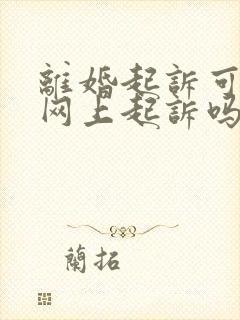 離婚起訴可
网上起訴吗
蘭拓